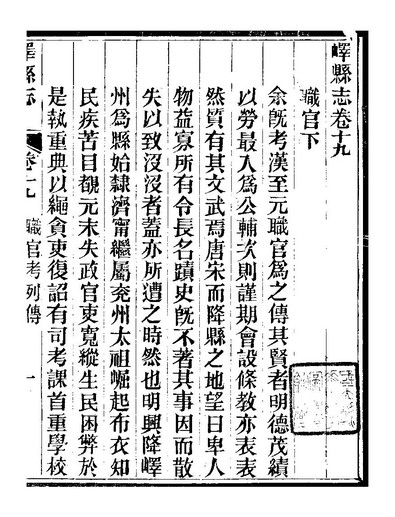 嶧縣志卷十九
職官下
余旣考漢至元職官爲之傳其賢者明德茂績
以勞最入爲公輔次則謹期會設條教亦表表
然質有其文武焉唐宋而降縣之地望日卑人
物益寡所有令長名蹟史旣不著其事因而散
失以致沒沒者蓋亦所遭之時然也明興降嶧
州爲縣始隸濟甯繼屬兖州太祖崛起布衣知
民疾苦目覩元末失政官吏寬縱生民困弊於
是執重典以繩貪吏復詔有司考課首重學校
嶧縣志
卷十九 職官考列傳 一